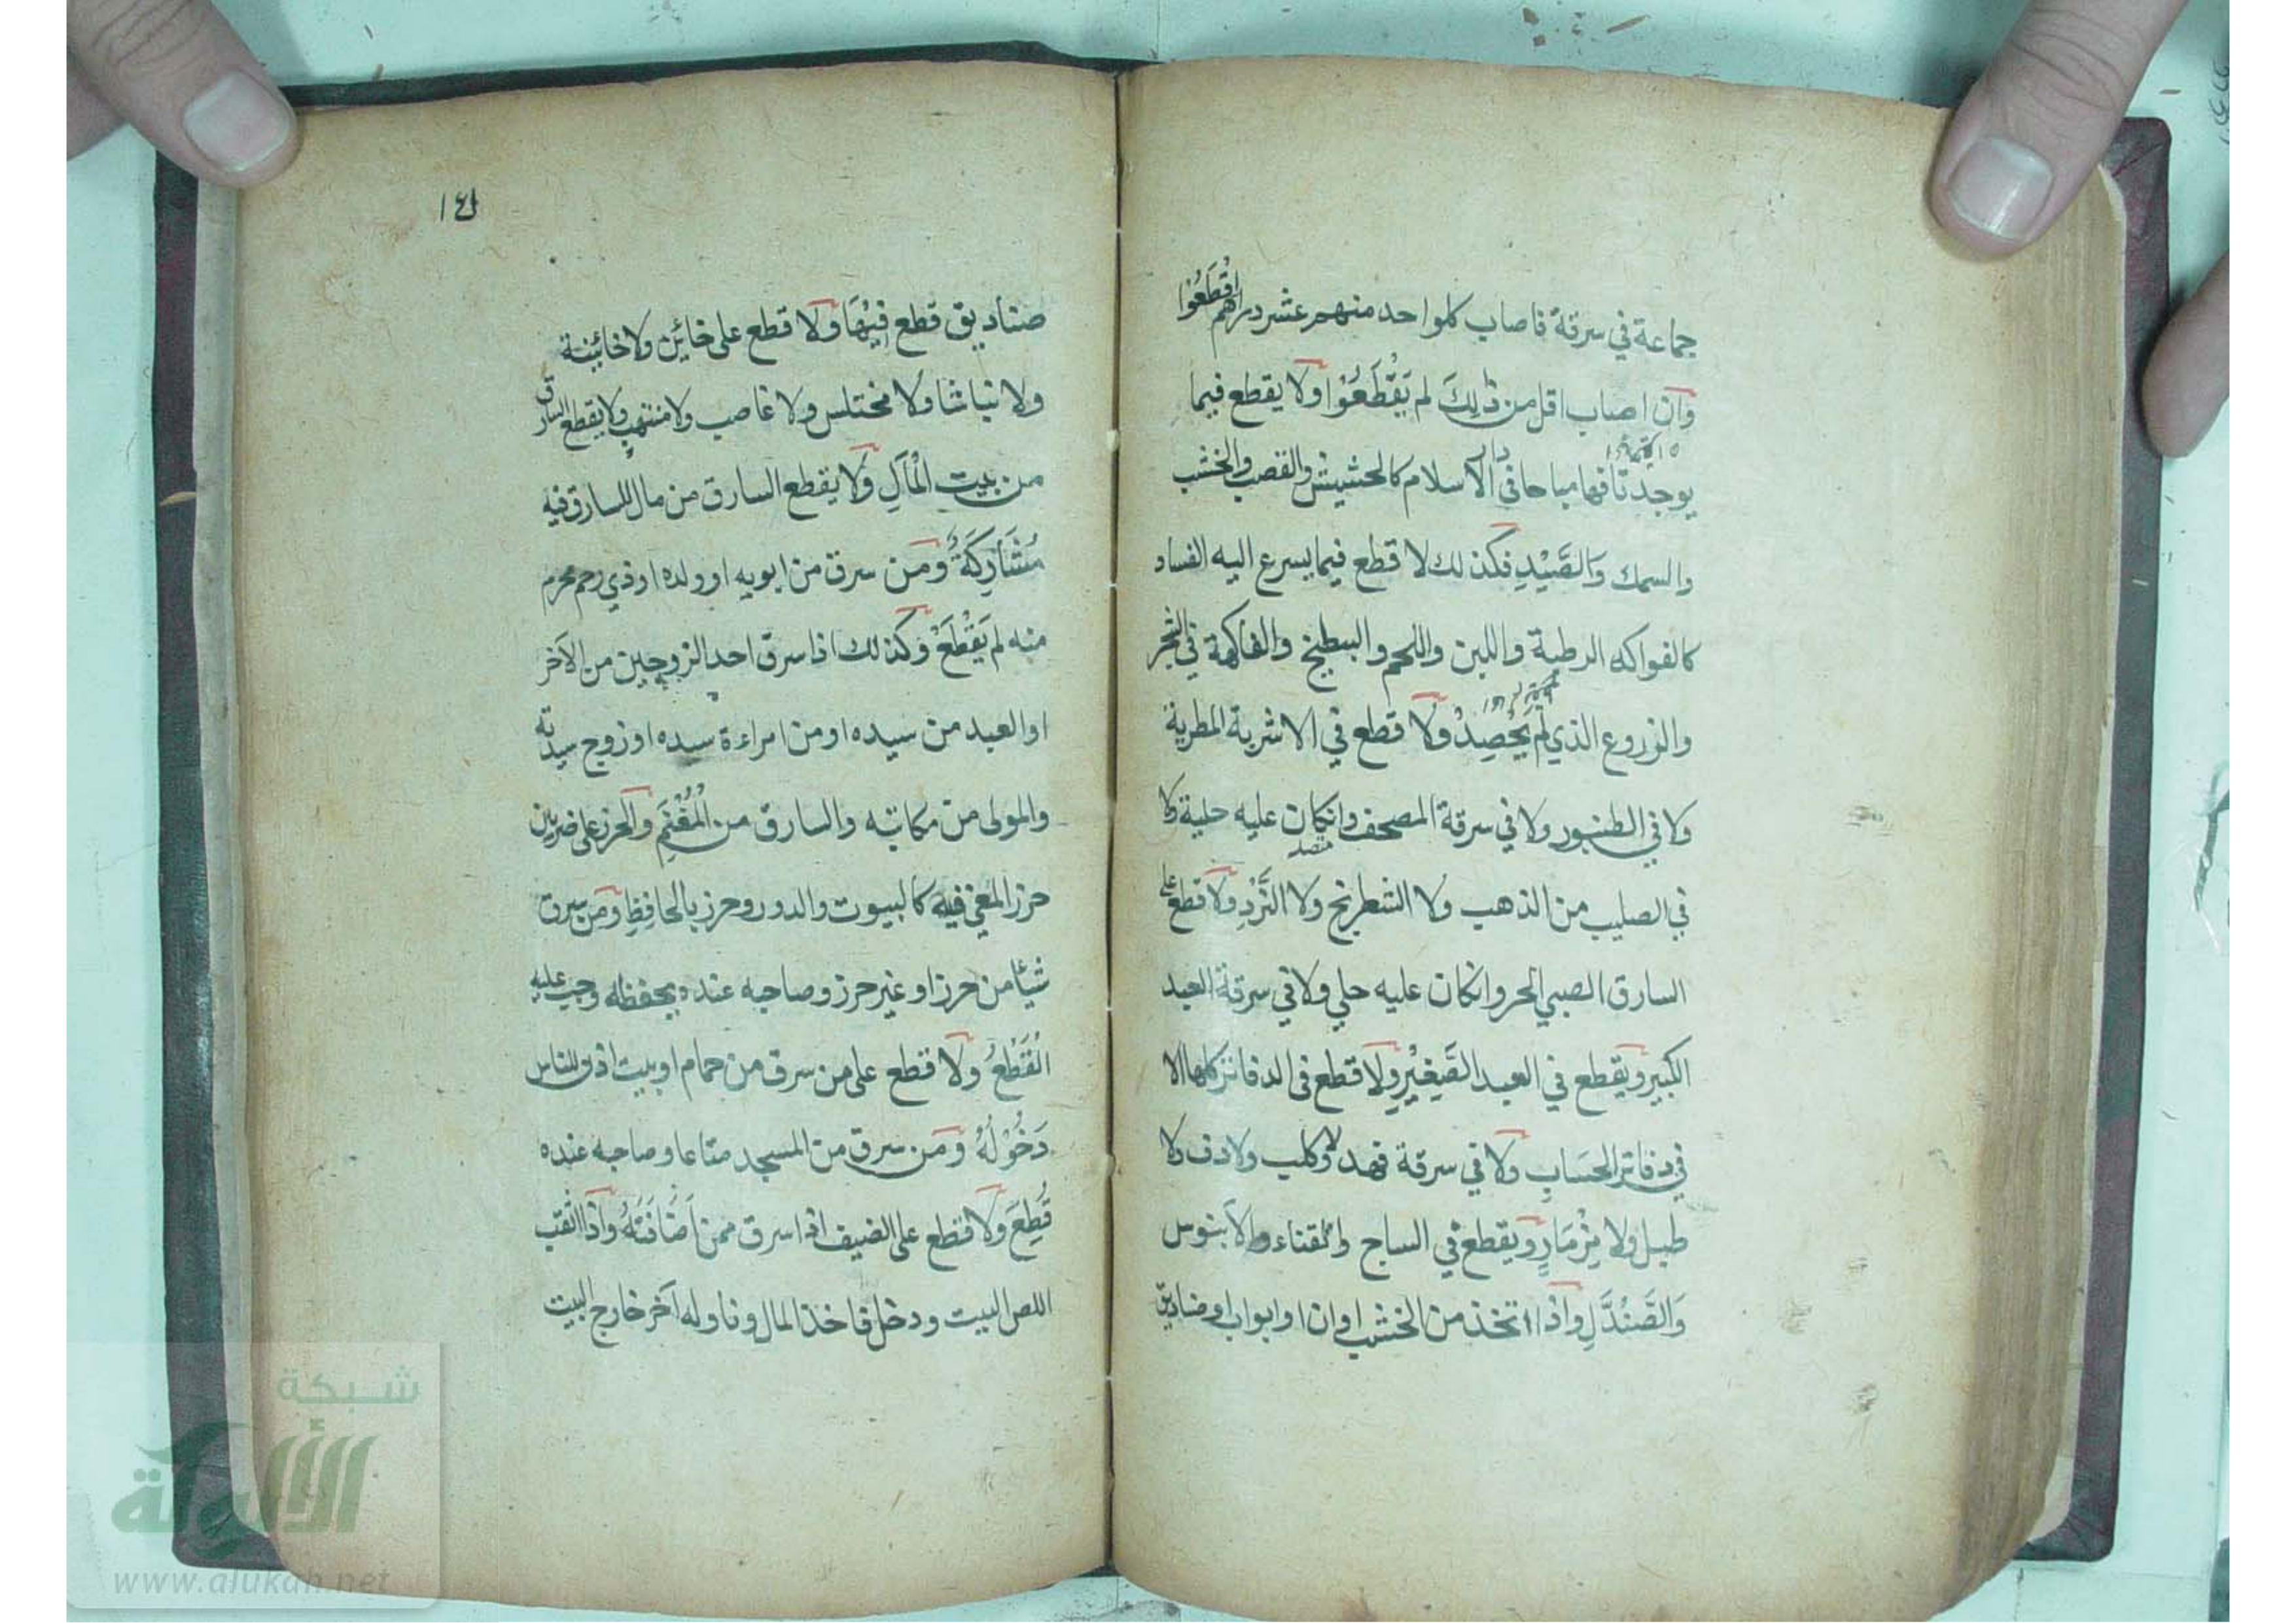 جماعة في سرقة فاصاب كلواحد منهم عشر دراهم اقْطَعُوْا
وان اصاب اقل من ذٰلِكَ لم يَقْطَعُوْا ولا يقطع فيما
يوجد تافها مباحا في دار الآسلام كالحشيش والقصب والخشب
والسمك وَالصَّيْدِ فكذلك لا قطع فيما يسرع اليه الفساد
كالفواكه الرطبة واللبن واللحم والبطيخ والفاكهة في الشجر
والزروع الذي لَمْ يُحْصِدْ ولا قطع في الاشربة المطربة
ولا في الطنبور ولا في سرقة المصحف وانكان عليه حلية ولا
في الصليب من الذهب ولا الشطرنج ولا النَّرْدِ ولا قطع على
السارق الصبي الحر وانكان عليه حلي ولا في سرقة العبد
الكبير ويقطع في العبد الصَّغِيْرِ ولا قطع في الدفاتر كلها الا
في دفاتر الحسَابِ ولا في سرقة فهد ولا كلب ولا دف ولا
طبل ولا مِزْمَارٍ ويقطع في الساج والقناء والآبنوس
وَالصَّنْدَلِ واذا اتخذ من الخشب اوان او ابواب او صناديق
١٤١
صناديق قطع فِيْهَا ولا قطع على خائِن ولا خائِنة
ولا نباشا ولا مختلس ولا غاصب ولا منتهب ولا يقطع السارق
من بيت الْمَالِ ولا يقطع السارق من مال للسارق فيه
مُشَارِكَةٌ ومن سرق من ابويه او ولده او ذي رحم محرم
منه لم يَقْطَعْ وكذلك اذا سرق احد الزوجين من الآخر
او العبد من سيده او من امراءة سيده او زوج سيدته
والمولى من مكاتبه والسارق من الْمُغْنَمِ والحرز على ضربين
حرز المغي فيه كالبيوت والدور وحرز بالحافِظِ ومن سرق
شيأ من حرز او غير حرز وصاحبه عنده يحفظه وجب عليه
الْقَطْعُ ولا قطع على من سرق من حمام او بيت اذن للناس
دَخُوْلُهُ ومن سرق من المسجد متاعا وصاحبه عنده
قُطِعَ ولا قطع على الضيف اذا سرق ممن اَضَافَتُهُ واذا انقب
اللص البيت ودخل فاخذ المال وناوله آخر خارج البيت
شبكة
الألوكة
www.alukah.net